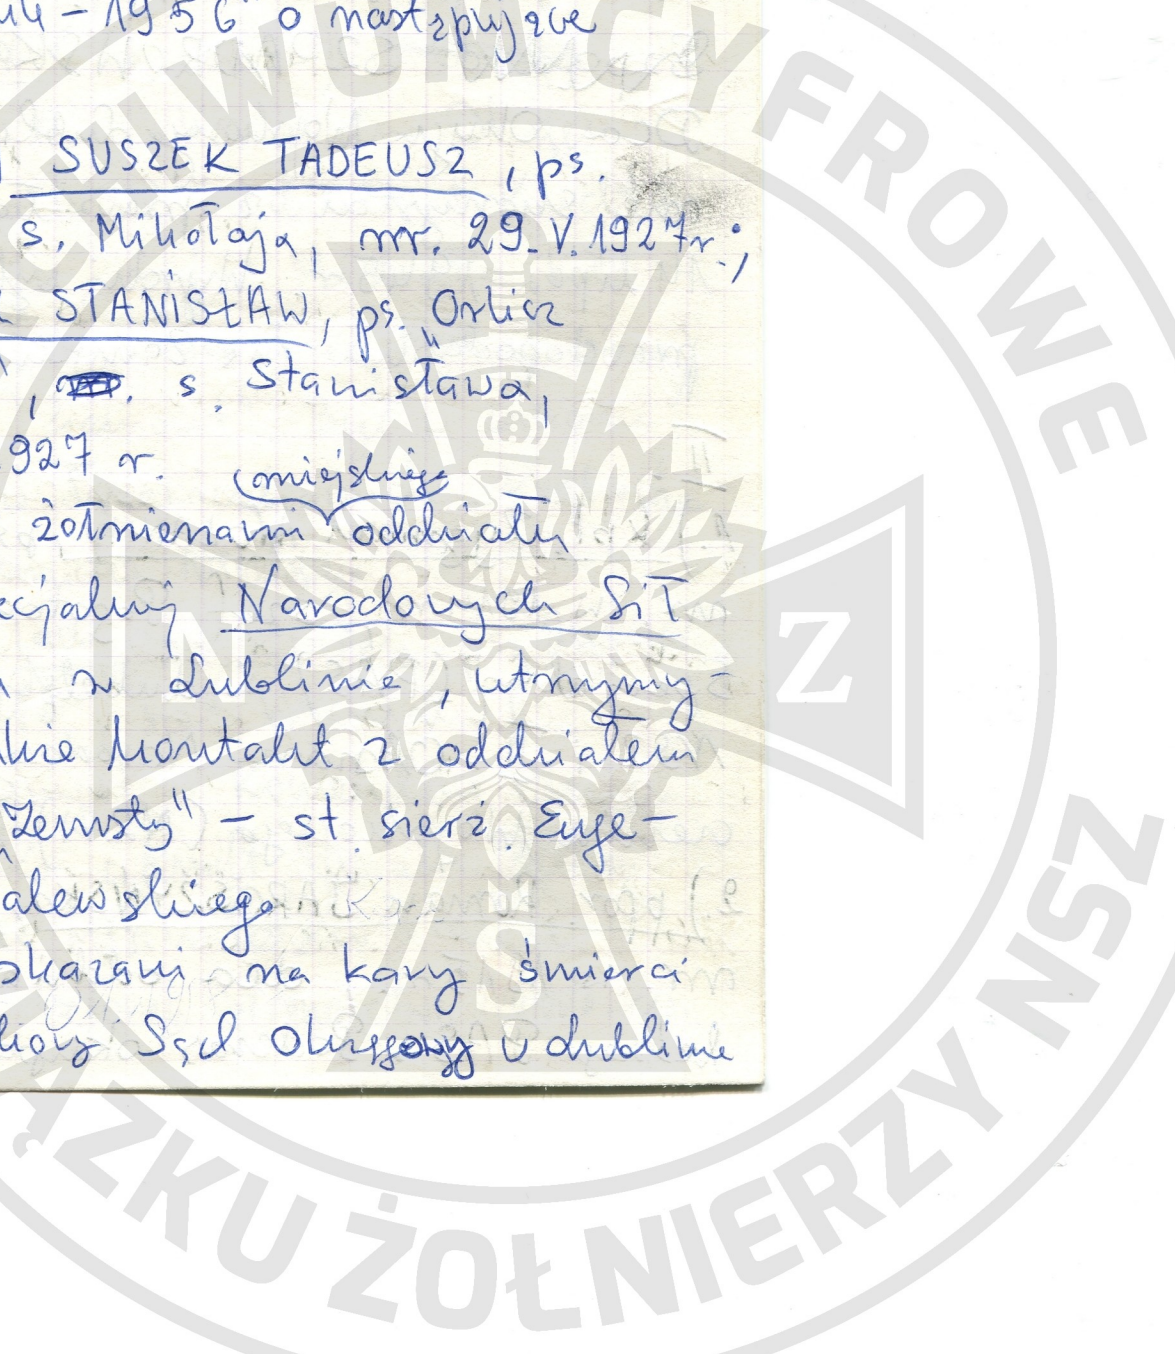 44 – 1956" o następujące
SUSZEK TADEUSZ, ps.
s. Mikołaja, nr. 29.V.1927r.;
STANISŁAW, ps. „Orlicz
, s. Stanisława,
927 r. miejskiego
żołnierzami oddziału
ecjalnej Narodowych Sił
w Lublinie, utrzymy-
kontakt z oddziałem
Zemsty" – st. sierż. Euge-
alewskiego
skazani na kary śmierci
kowy Sąd Okręgowy w Lublinie
CHIWUM CYFROWE
ĄZKU ŻOŁNIERZY NSZ
N
S
Z